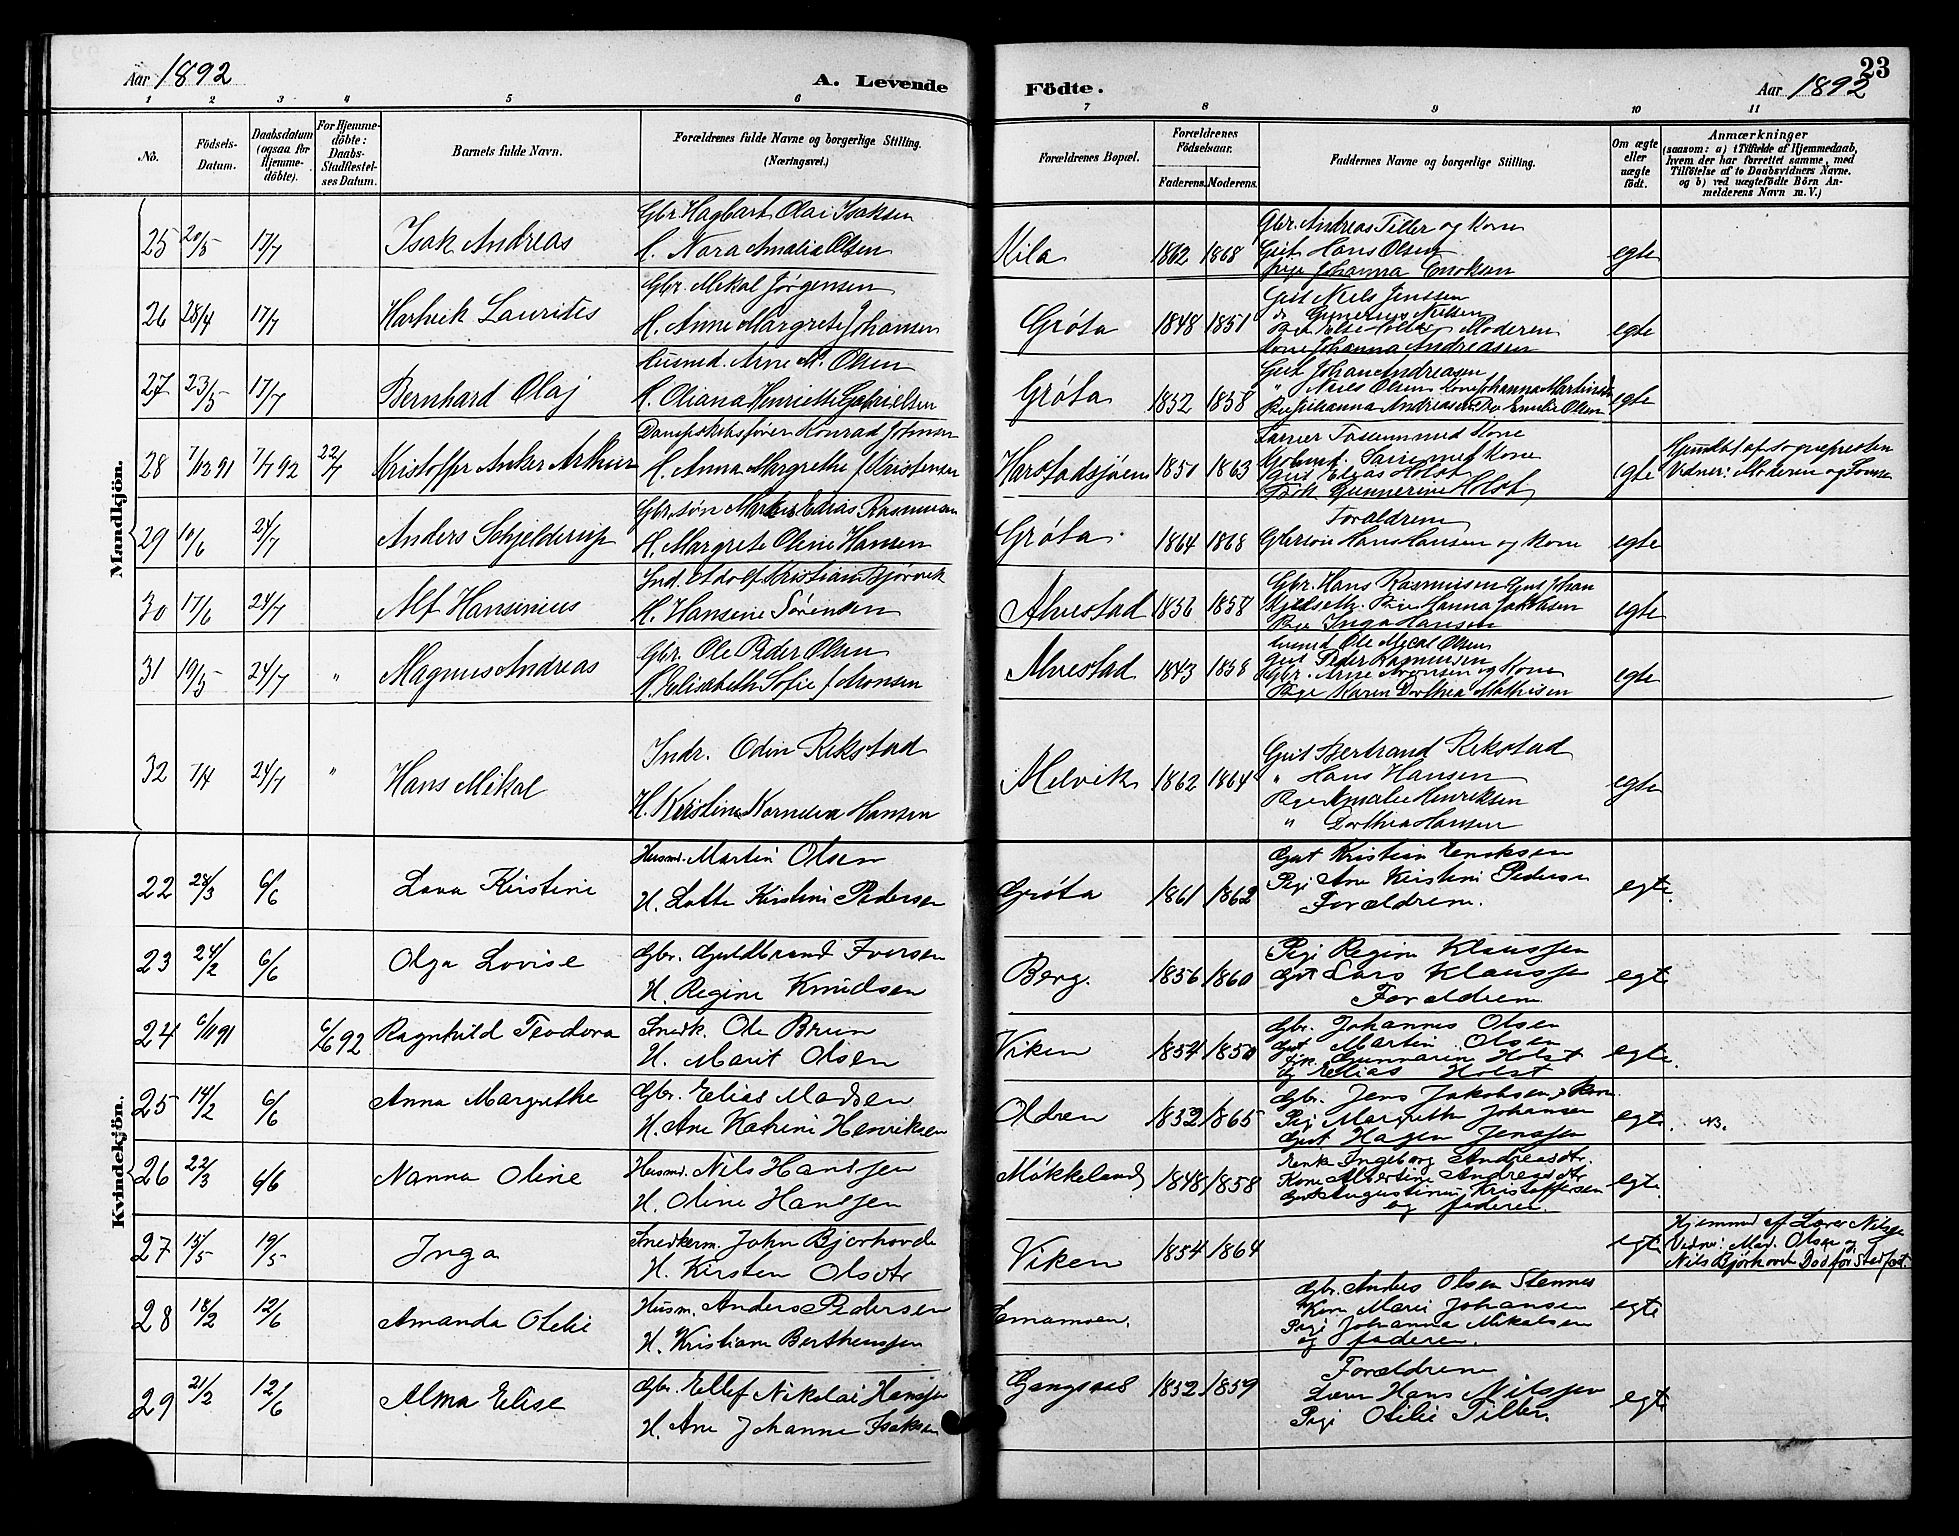 Aar 1892
A. Levende
Födte.
23
Aar 1892
1 2 3 4 5 6 7 8 9 10 11
No.
Födsels-Datum.
Daabsdatum (ogsaa for Hjemme-döbte).
For Hjemme-döbte: Daabs-Stadfæstel-ses Datum.
Barnets fulde Navn.
Forældrenes fulde Navne og borgerlige Stilling. (Næringsvei.)
Forældrenes Bopæl.
Forældrenes Födselsaar.
Faderens. Moderens.
Faddernes Navne og borgerlige Stilling.
Om ægte eller uægte födt.
Anmærkninger
(saasom: a) i Tilfælde af Hjemmedaab,
hvem der har forrettet samme, med
Tilföielse af to Daabsvidners Navne.
og b) ved uægtefödte Börn An-
melderens Navn m. V.)
Mandkjön.
25 20/5 17/7 Isak Andreas
Gbr Hagbart Olai Isaksen
H. Nora Amalia Olsen
Kila 1862 1868
Gbr. Andreas Tiller og Kone
Gut Hans Olsen
Pige Johanna
egte
26 28/4 17/7 Hartvik Laurits
Gbr. Mekal Jørgensen
H. Anne Margrete Johansen
Grøta 1848 1851
Gut Niels Jenssen
Moderen
Kone Johanna Andreasen
egte
27 23/5 17/7 Bernhard Olaj
Husmd. Arne M. Olsen
H. Oliana Henriette Gabrielsen
Grøta 1852 1858
Gut Johan Andreasen
" Niels Olsen Kone Johanna Martinsen
Pige Johanna Andreasen Pige Emilie Olsen
egte
28 7/12 91 7/7 92 22/7 Kristoffer Anker Arthur
Dampskibsfører Konrad Johnsen
H. Anna Margrethe f. Kristensen
Harstadsjøen 1851 1863
med Kone
med Kone
Gut Elias Holst
Frøk Gunnerine Holst
egte
af sogneprosten
Vidner: Moderen og
29 10/6 24/7 Anders Schjelderup
Gbr.søn Markus Edias Rasmussen
H. Margrete Oline Hansen
Grøta. 1864 1868
Forældrene
Gbrsøn Hans Hansen og Kone
egte
30 17/6 24/7 Alf Hansinius
Ind. Adolf Kristian Bjørnvik
H. Hansine Sørensen
Alvestad 1856 1858
Gbr. Hans Rasmussen Gut Johan
Kjelseth. Pige Hanna Jakobsen
Pige Inga Hansen
egte
31 19/5 24/7 " Magnus Andreas
Gbr. Ole Peder Olsen
H. Elisabeth Sofie f. Aronsen
Alvestad 1843 1858
Husmd Ole Mical Olsen
Gut Peder Rasmussen
Gbr. Arne Aronsen og Kone
Pige Karen Dorthea Mathisen
egte
32 7/4 24/7 " Hans Mikal
Indr. Odin Rikstad
H. Kirstine Kornelia Hansen
Melvik 1862 1864
Gut Bertrand Rikstad
" Hans Hansen
Pige Amalie Henriksen
" Dorthea Hansen
egte
Kvindekjön.
22 28/3 6/6 Lava Kirstine
Husmd. Martin Olsen
H. Lotte Kirstine Pedersen
Grøta 1861 1862
Gut Kristian Eriksen
Pige Ane Kirstine Pedersen
Forældrene.
egte.
23 24/2 6/6 Olga Lovise
Gbr. Guldbrand Iversen
H. Regine Knudsen
Berg. 1856 1860
Pige Regine Klaussen
Gut Lars Klaussen
Forældrene
egte
24 6/11 91 6/6 92 Ragnhild Teodora
Snedk. Ole Bruun
H. Marit Olsen
Viken 1854 1850
Gbr. Johannes Olsen
Gut Martin Olsen
Gunnarine Holst
og Elias Holst
egte
25 14/2 6/6 Anna Margrethe
Gbr. Elias Madsen
H. Ane Katrine Henriksen
Oldren 1832 1865
Gbr. Jens Jakobsen, Kone
Pige Margrethe Johansen
Gut Hagen Jenssen
egte. NB.
26 22/3 6/6 Nanna Oline
Husmd. Nils Hanssen
H. Oline Hanssen
Møkkeland 1848 1858
Enke Ingeborg Andreasdtr.
Kone Albertine Andreasdtr
Augustinus Kristoffersen
og faderen.
egte.
27 15/5 19/5 Inga
Snedkerm. John Bjørhovde
H. Kirsten Olsdtr
Viken 1854 1864
egte
Hjemmed af Lærer Nilsse
Vidner: Mag. Olsen og
Nils Bjørhovde Död för Stadfæst.
28 18/2 12/6 Amanda Otelie
Husm. Anders Pedersen
H. Kristiane Berthenssen
Ernamoen.
Gbr. Anders Olsen Stennes
Kone Marie Johansen
Pige Johanna Mikalsen
og faderen.
egte
29 21/2 12/6 Alma Elise
Gbr. Ellef Nikolai Hanssen
H. Ane Johanne Isaksen
Gangsaas 1852 1859
Forældrene
Lærer Hans Nilssen
Pige Otilie Tiller.
egte